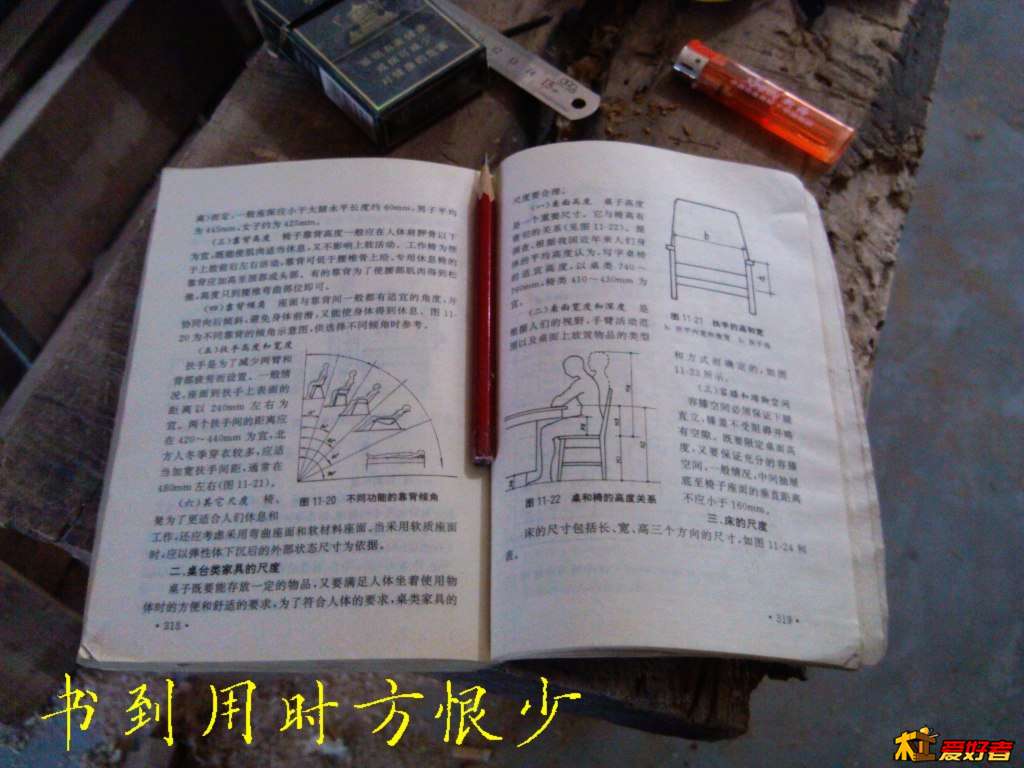 离)而定,一般座深应小于大腿水平长度约60mm,男子平均
为445mm,女子约为425mm。
(三)靠背高度 椅子靠背高度一般应在人体肩胛骨以下
为宜,既能使肌肉适当休息,又不影响上肢活动。工作椅为便
于上肢前后左右活动,靠背可低于腰椎骨上沿,专用休息椅的
靠背应加高至颈部或头部。有的靠背为了使腰部肌肉得到松
弛,高度只到腰椎弯曲部位即可。
(四)靠背倾角 座面与靠背间一般都有适宜的角度,并
协同向后倾斜,避免身体前滑,又能使身体得到休息。图11-
20为不同靠背的倾角示意图,供选择不同倾角时参考。
(五)扶手高度和宽度
扶手是为了减少两臂和
背部疲劳而设置。一般情
况,座面到扶手上表面的
距离以240mm左右为
宜。两个扶手间的距离应
在420~440mm为宜,北
方人冬季穿衣较多,应适
当加宽扶手间距,通常在
480mm左右(图11-21)。
图11-20 不同功能的靠背倾角
(六)其它尺度 椅、
凳为了更适合人们休息和
工作,还应考虑采用弯曲座面和软材料座面。当采用软质座面
时,应以弹性体下沉后的外部状态尺寸为依据。
二、桌台类家具的尺度
桌子既要能存放一定的物品,又要满足人体坐着使用物
体时的方便和舒适的要求,为了符合人体的要求,桌类家具的
·318·
尺度要合理。
(一)桌面高度 桌子高度
是一个重要尺寸。它与椅高有
密切的关系(见图11-22)。据
调查,根据我国近年来人们身
体的平均高度认为,写字桌椅
的适宜高度,以桌类740~
760mm,椅类410~430mm为
宜。
(二)桌面宽度和深度 是
根据人们的视野,手臂活动范
围以及桌面上放置物品的类型
b
图11-21 扶手的高和宽
图11-22 桌和椅的高度关系
和方式而确定的,如图
11-23所示。
(三)容膝和储物空间
容膝空间必须保证下腿
直立,膝盖不受阻碍并略
有空隙。既要限定桌面高
度,又要保证充分的容膝
空间,一般情况,中间抽屉
底至椅子座面的垂直距离
不应小于160mm。
三、床的尺度
床的尺寸包括长、宽、高三个方向的尺寸,如图11-24和
表。
·319·
15
书到用时方恨少
爱好者